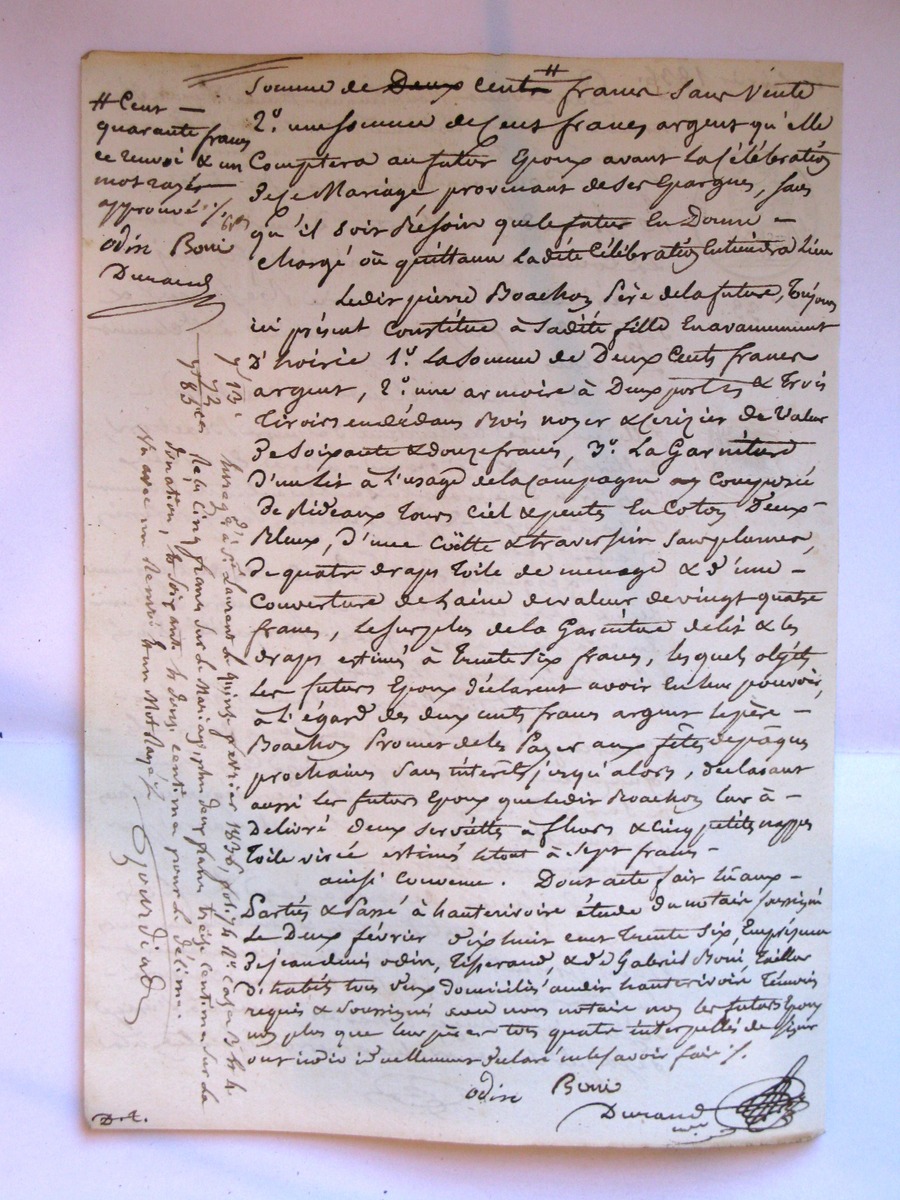 somme de Deux cents # francs sans vente
2.° une somme de Cent francs argent qu'elle
Comptera au futur Epoux avant la Célébration
de ce Mariage provenant de ses Epargnes, sans
qu'il soit Besoin que le futur En Donne –
chargé où quittance ladite Célébration En tiendra Lieu
Ledit pierre Boachon Père de la future, Toujours
ici présent Constitue à sadite fille En avancement
D'hoirie 1.° La Somme de Deux Cents francs
argent, 2.° une armoire à Deux portes & Trois
Tiroirs en dedans Bois noyer & Cerizier de Valeur
De Soixante & douze francs, 3.° La Garniture
D'un Lit à L'usage de la Campagne Composé
De Rideaux Tours Ciel & pentes En Coton D'eux
Bleux, d'une Coëtte & traversin sans plumes,
de quatre draps Toile de menage & d'une –
Couverture de Laine de valeur de vingt quatre
francs, Le Surplus de la Garniture de lit & les
draps estimés à Trente Six francs, lesquels objets
Les futurs Epoux déclarent avoir En leur pouvoir,
à L'égard des deux cents francs argent le père –
Boachon Promet de les Payer aux fêtes de paques
prochaines Sans intérêts jusqu'alors, déclarant
aussi Les futurs Epoux que Ledit Boachon leur à –
Delivré deux Serviettes à fleurs & cinq petites nappes
Toile virée estimés le tout à Sept francs –
ainsi Convenu. Dont acte fait Lu aux –
Parties & Passé à hauterivoire étude du notaire soussigné
Le Deux février dix huit cent Trente Six, En présence
De jean denis odin, Tisserand, & de Gabriel Boni, Tailleur
D'habits tous deux domiciliés audit hauterivoire Témoins
requis & Soussignés avec nous notaire non les futurs Epoux
non plus que leurs père tous quatre interpellés de signer
ont individuellement déclaré ne le savoir faire /.
odin Boni
Durand
# Cent –
quarante francs
ce renvoi & un
mot rayé –
approuvé /.
odin Boni
Durand
13.
72
85
Enreg.é à S.t Laurent de
février 1836, fol.
Reçu Cinq francs sur le Mariage, plus deux francs treize centimes sur la
donation, & Soixante & douze centimes pour le décime.
Vu avec un Renvoi & un Mot Rayé /.
D.t.